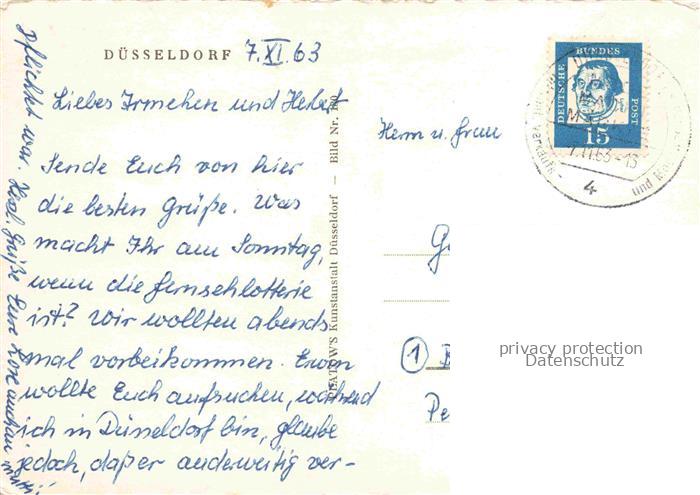 DÜSSELDORF 7.XI.63
Liebes Irmchen und Hebert
Sende Euch von hier
die besten Grüße. Was
macht Ihr am Sonntag,
wenn die Fernsehlotterie
ist? Wir wollten abends
mal vorbeikommen. Erwin
wollte Euch aufsuchen, während
ich in Düsseldorf bin, glaube
jedoch, daß er anderweitig ver-
pflichtet war. Herzl. Grüße Eure
KUNSTANSTALT Düsseldorf — Bild Nr.
Herrn u. Frau
G
1
Pe
DEUTSCHE BUNDES POST
15
7.11.63-13
4
und
privacy protection
Datenschutz